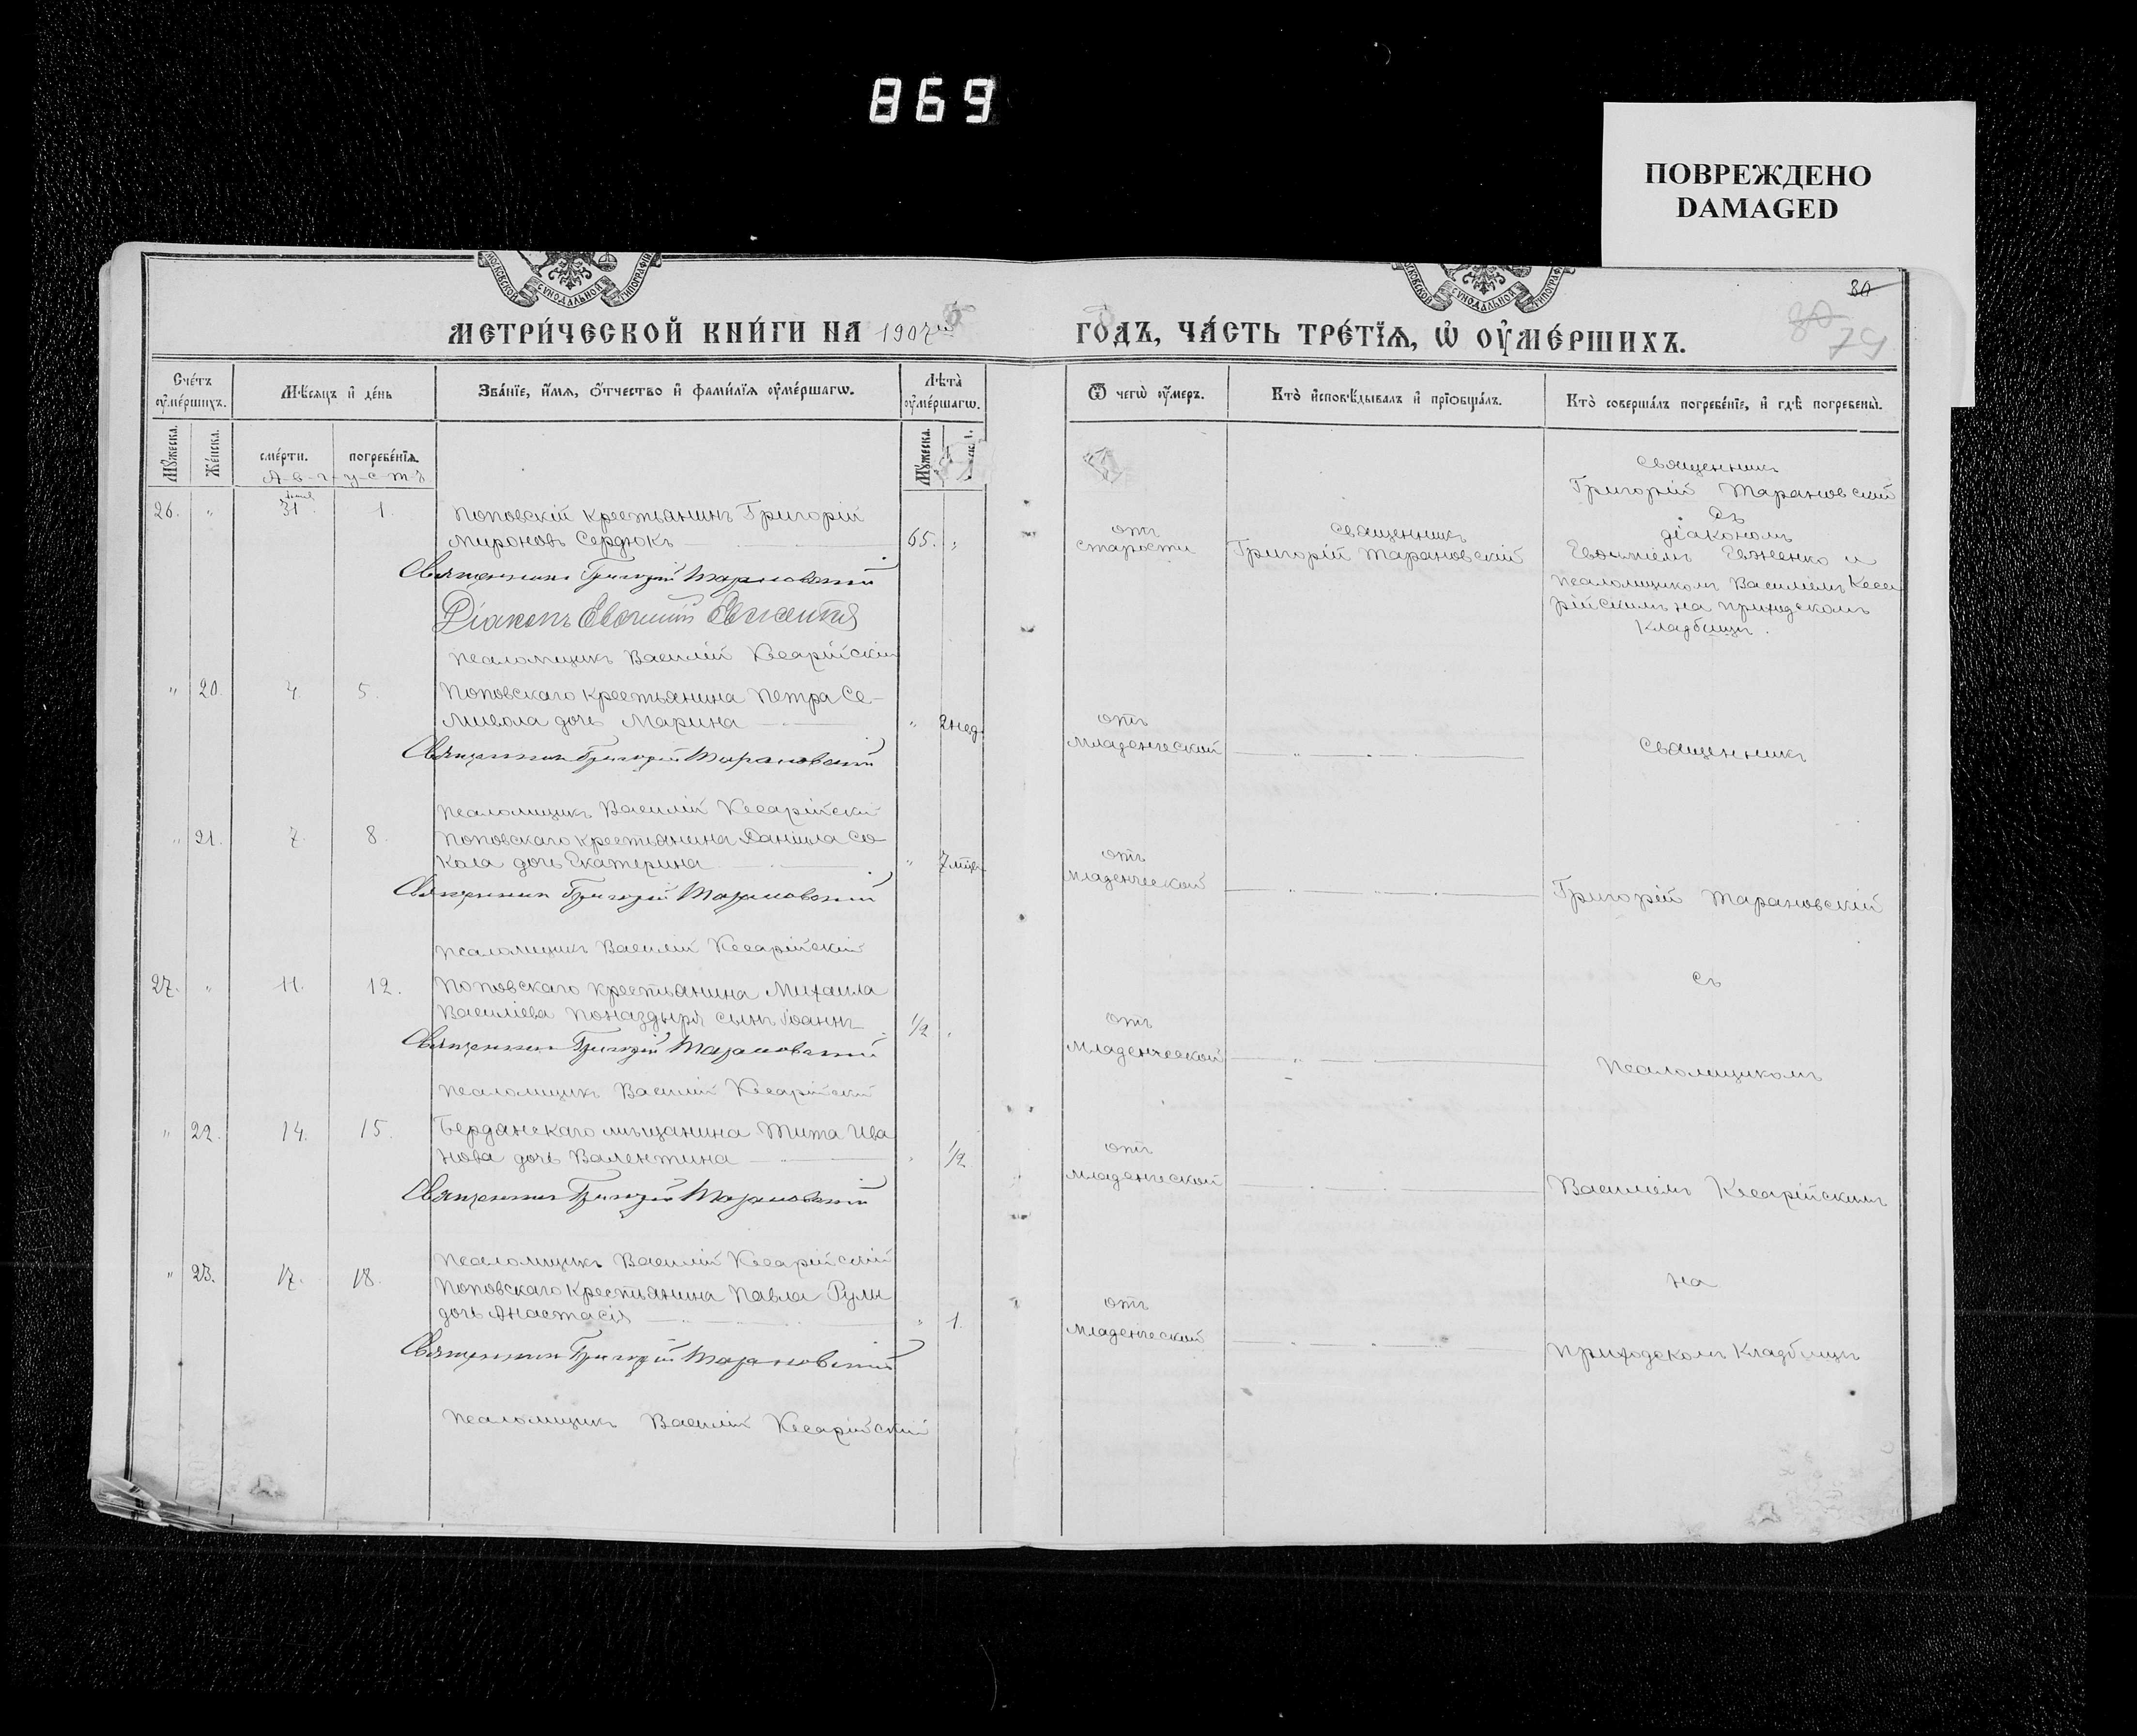 869
ПОВРЕЖДЕНО
DAMAGED
МОСКОВСКОЙ СѴНОДАЛЬНОЙ ТИПОГРАФІИ
МОСКОВСКОЙ СѴНОДАЛЬНОЙ ТИПОГРАФІИ
80
79
МЕТРИ́ЧЕСКОЙ КНИ́ГИ НА 1907й
ГО́ДЪ, ЧА́СТЬ ТРЕ́ТЇѦ, Ѡ҆ ОУ҆МЕ́РШИХЪ.
Сче́тъ оу҆ме́ршихъ.
Мѣ́сѧцъ и҆ де́нь
Зва́нїе, и҆́мѧ, ѻ҆́тчество и҆ фами́лїѧ оу҆ме́ршагѡ.
Лѣта̀ оу҆ме́ршагѡ.
Ѿ чегѡ̀ оу҆́меръ.
Кто̀ и҆сповѣ́дывалъ и҆ прїѡбща́лъ.
Кто̀ соверша́лъ погребе́нїе, и҆ гдѣ̀ погребены̀.
Мꙋ́жеска.
Же́нска.
сме́рти.
погребе́нїѧ.
Мꙋ́жеска.
А-в-г-у-с-т-ъ
26. " 31. 1. Поповскій крестьянинъ Григорій
Мироновъ Сердюкъ 65. "
Священникъ Григорій Тарановскій
Діаконъ Евѳимій Евженко
Псаломщикъ Василій Кесарійскій
отъ
старости
Священникъ
Григорій Тарановскій
Священникъ
Григорій Тарановскій
съ
діакономъ
Евѳиміемъ Евженко и
псаломщикомъ Василіемъ Кеса
рійскимъ на приходскомъ
кладбищѣ.
" 20. 4. 5. Поповскаго крестьянина Петра Се-
мивола дочь Марина " 2 нед.
Священникъ Григорій Тарановскій
Псаломщикъ Василій Кесарійскій
отъ
младенческой
Священникъ
" 21. 7. 8. Поповскаго крестьянина Даніила Со
кола дочь Екатерина " 7 мѣс.
Священникъ Григорій Тарановскій
Псаломщикъ Василій Кесарійскій
отъ
младенческой
Григорій Тарановскій
27. " 11. 12. Поповскаго крестьянина Михаила
Василіева Поназдыря сынъ Іоаннъ 1/2 "
Священникъ Григорій Тарановскій
Псаломщикъ Василій Кесарійскій
отъ
младенческой
съ
псаломщикомъ
" 22. 14. 15. Бердянскаго мѣщанина Тита Ива
нова дочь Валентина " 1/2
Священникъ Григорій Тарановскій
Псаломщикъ Василій Кесарійскій
отъ
младенческой
Василіемъ Кесарійскимъ
" 23. 17. 18. Поповскаго крестьянина Павла Рулы
дочь Анастасія " 1.
Священникъ Григорій Тарановскій
Псаломщикъ Василій Кесарійскій
отъ
младенческой
на
приходскомъ кладбищѣ